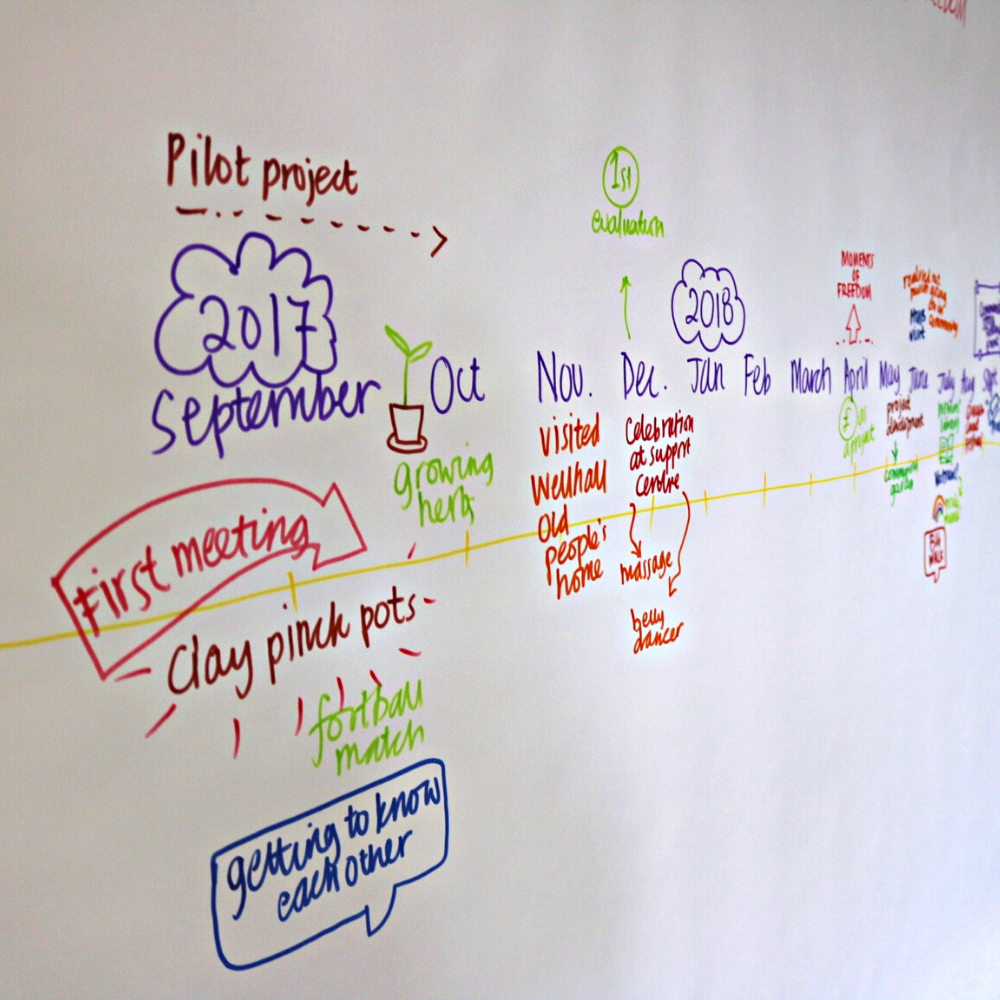 Pilot project
1st
evaluation
2017
2018
MOMENTS
OF
FREEDOM
September
Oct
Nov.
Dec.
Jan
Feb
March
April
May
June
July
Aug
Sept
growing
herbs
visited
Wellhall
Old
people's
home
Celebration
at support
centre
massage
belly
dancer
£
project
development
community
garden
First meeting
Clay pinch pots
football
match
getting to know
each other